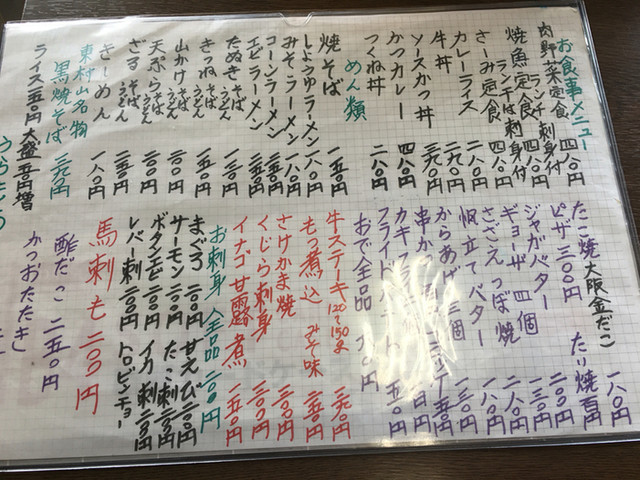 お食事メニュー
肉野菜定食 ランチ刺身付 四八〇円
焼魚定食 ランチは刺身付 四八〇円
さしみ定食 四八〇円
カレーライス 二八〇円
牛丼 二九〇円
ソースかつ丼 三九〇円
かつカレー 四八〇円
つくね丼 二八〇円
めん類
焼そば 一五〇円
しょうゆラーメン 一八〇円
みそラーメン 一八〇円
コーンラーメン 二五〇円
エビラーメン 二五〇円
たぬき そば うどん 一五〇円
きつね そば うどん 一五〇円
山かけ そば うどん 二〇〇円
天ぷら そば うどん 二〇〇円
ざる そば うどん 二五〇円
きしめん 一八〇円
東村山名物
黒焼そば 三九〇円
ライス 一五〇円 大盛 五〇円増
たこ焼 大阪金だこ 一八〇円
ピザ 三〇〇円 たい焼 百円
ジャガバター
ギョーザ 四個
さざえつぼ焼
帆立てバター
からあげ 三個
串かつ
カキフライ
フライドポテト
おでん全品 六〇円
牛ステーキ 120〜150g 三九〇円
もつ煮込 みそ味 二五〇円
さけかま焼 二〇〇円
くじら刺身 二〇〇円
イナゴ甘露煮 一五〇円
お刺身 全品 二〇〇円
まぐろ 二〇〇円 甘えび 二〇〇円
サーモン 二〇〇円 たこ刺 二〇〇円
ボタンエビ 二〇〇円 イカ刺 二〇〇円
レバー刺 二〇〇円 トロビンチョー
馬刺も 二〇〇円
酢だこ 二五〇円
かつおたたき